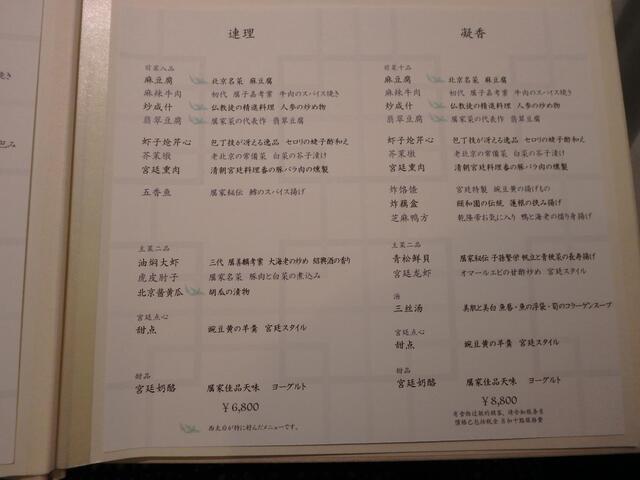 連理
前菜八品
麻豆腐 北京名菜 麻豆腐
麻辣牛肉 初代 厲子嘉考案 牛肉のスパイス焼き
炒咸什 仏教徒の精進料理 人参の炒め物
翡翠豆腐 厲家菜の代表作 翡翠豆腐
虾子炝芹心 包丁技が冴える逸品 セロリの蝦子酢和え
芥菜墩 老北京の常備菜 白菜の芥子漬け
宮廷熏肉 清朝宮廷料理番の豚バラ肉の燻製
五香魚 厲家秘伝 鱈のスパイス揚げ
主菜二品
油焖大虾 三代 厲善麟考案 大海老の炒め 紹興酒の香り
虎皮肘子 厲家名菜 豚肉と白菜の煮込み
北京醤黄瓜 胡瓜の漬物
宮廷点心
甜点 豌豆黄の羊羹 宮廷スタイル
甜品
宮廷奶酪 厲家佳品天味 ヨーグルト
¥6,800
西太后が特に好んだメニューです。
凝香
前菜十品
麻豆腐 北京名菜 麻豆腐
麻辣牛肉 初代 厲子嘉考案 牛肉のスパイス焼き
炒咸什 仏教徒の精進料理 人参の炒め物
翡翠豆腐 厲家菜の代表作 翡翠豆腐
虾子炝芹心 包丁技が冴える逸品 セロリの蝦子酢和え
芥菜墩 老北京の常備菜 白菜の芥子漬け
宮廷熏肉 清朝宮廷料理番の豚バラ肉の燻製
炸饹馇 宮廷特製 豌豆黄の揚げもの
炸藕盒 頤和園の伝統 蓮根の挟み揚げ
芝麻鴨方 乾隆帝お気に入り 鴨と海老の摺り身揚げ
主菜二品
青松鮮貝 厲家秘伝 子孫繁栄 帆立と青梗菜の長寿揚げ
宮廷龙虾 オマールエビの甘酢炒め 宮廷スタイル
汤
三丝汤 美肌と美白 魚唇・魚の浮袋・筍のコラーゲンスープ
宮廷点心
甜点 豌豆黄の羊羹 宮廷スタイル
甜品
宮廷奶酪 厲家佳品天味 ヨーグルト
¥8,800